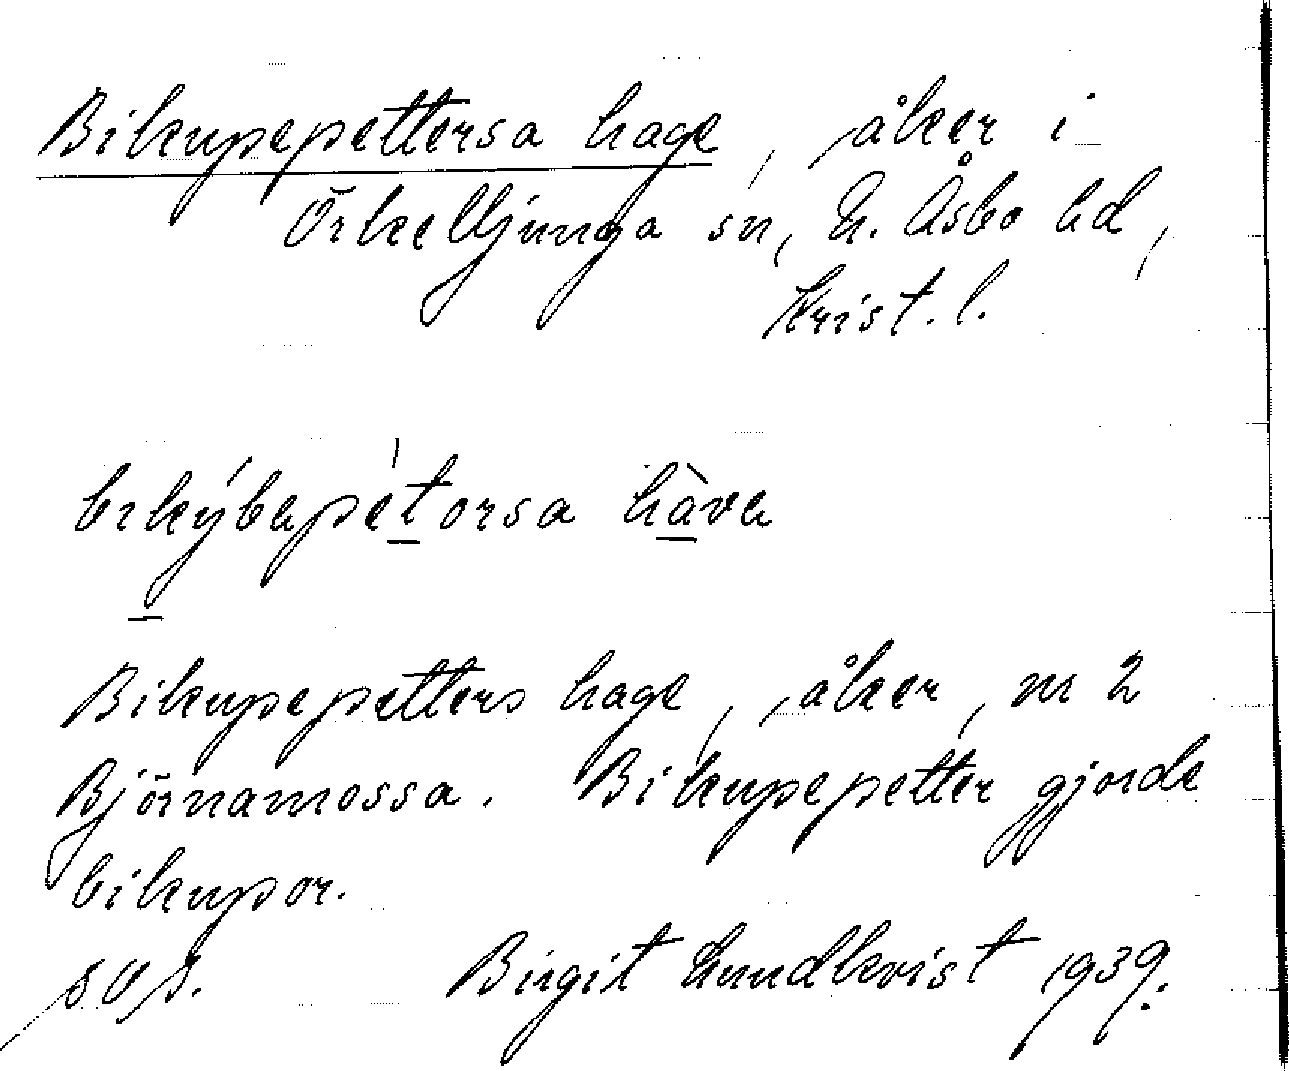 Bikupepettersa hage, åker i
Örkelljunga sn, N. Åsbo hd,
Krist. l.
bɪkýbapètorsa hàva
Bikupepetters hage, åker, m 2
Björnamossa. Bikupepetter gjorde
bikupor.
Birgit Lundkvist 1939.